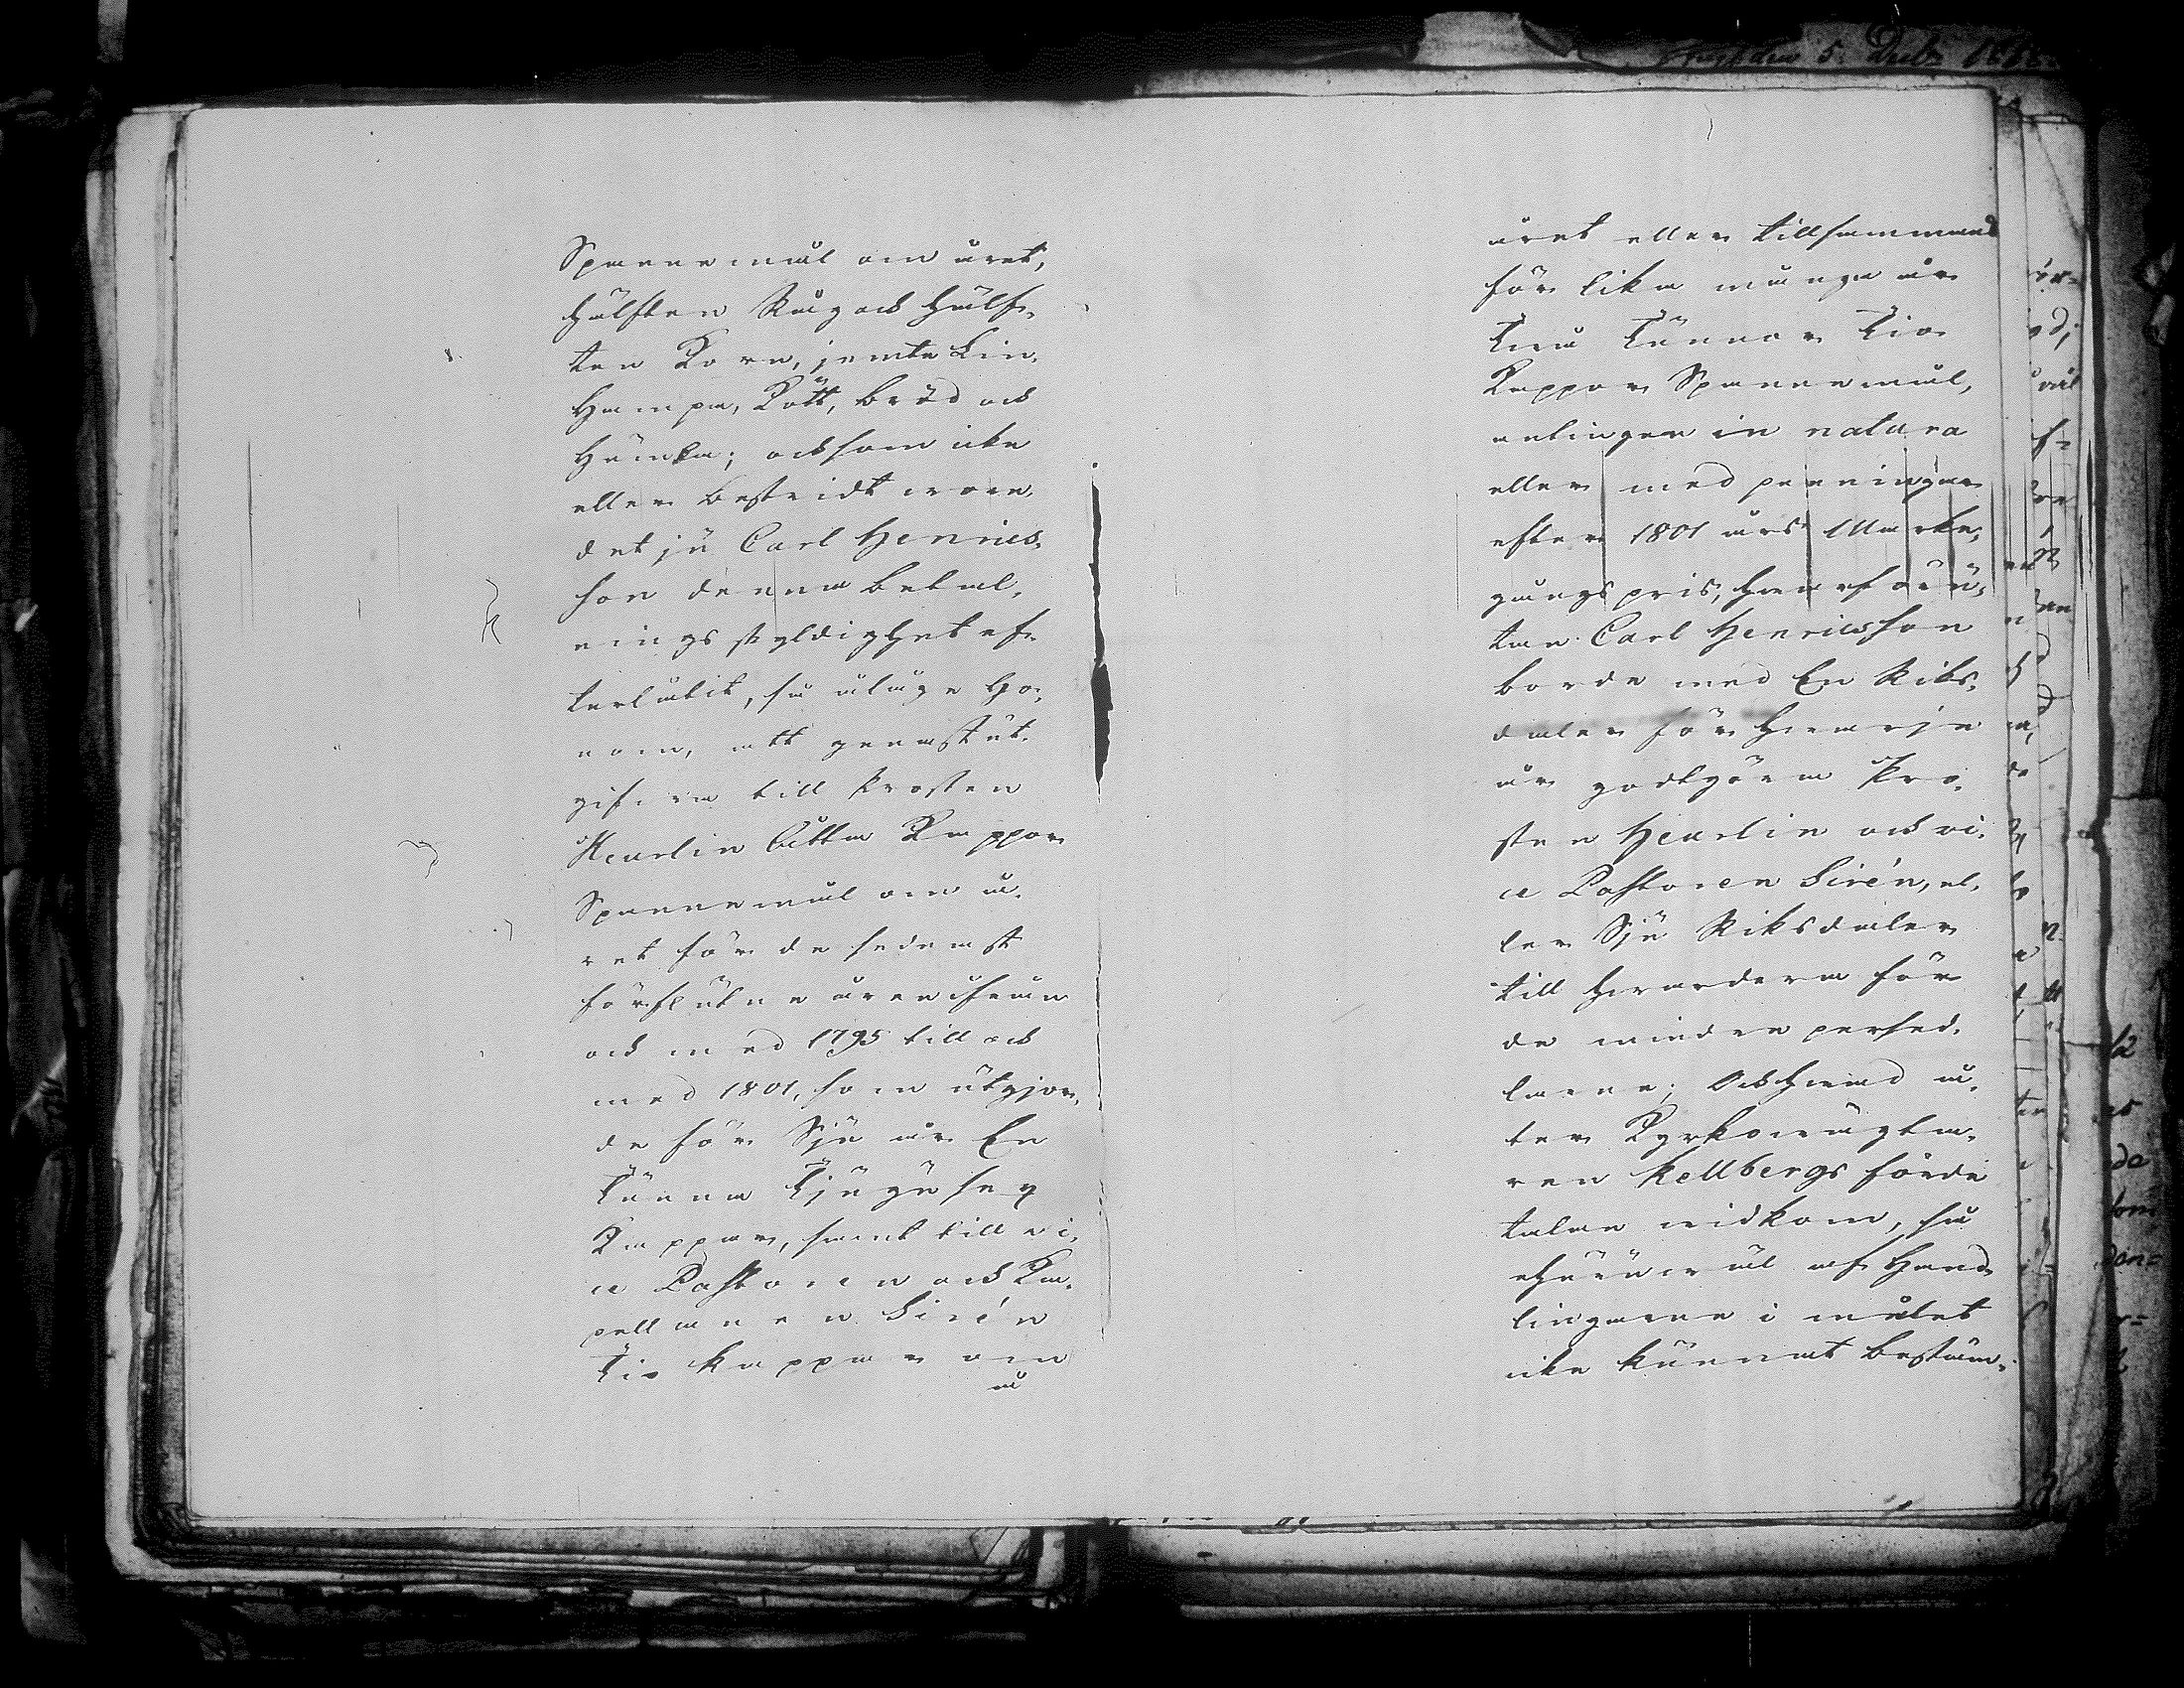 Spannemål om året,
hälften Råg och hälf-
ten Korn, jemte Lin,
Hampa, Kött, bröd och
Humla; och som icke
eller bestridt woro,
det ju Carl Henrics-
son denna betal-
nings skyldighet ef-
terlåtit, så ålåge ho-
nom, att genast ut-
gifva till Prosten
Heurlin Åtta Kappar
Spannemål om å-
ret för de sednast
förflutne åren ifrån
och med 1795 till och
med 1801, som utgjor-
de för Sju år En
Tunna Tjugusex
Kappar, samt till vi-
ce Pastoren och Ka-
pellanen Sirén
Tio kappar om
å
året eller tillsammans
för lika många år
Twå Tunnor Tio
Kappar Spannemål,
antingen in natura
eller med penningar
efter 1801 års Marke-
gångs pris, hwarförü-
tan Carl Henricsson
borde med En Riks-
daler för hwarje
år godtgöra Pro-
sten Heurlin och vi-
ce Pastoren Sirén, el-
ler Sju Riksdaler
till hwardera för
de mindre persed-
larne; Och hwad å-
ter Kyrkowägta-
ren Kellbergs förde
talan widkom, så
ehuruwäl af Hand-
lingarne i målet
icke kunnat bestäm-